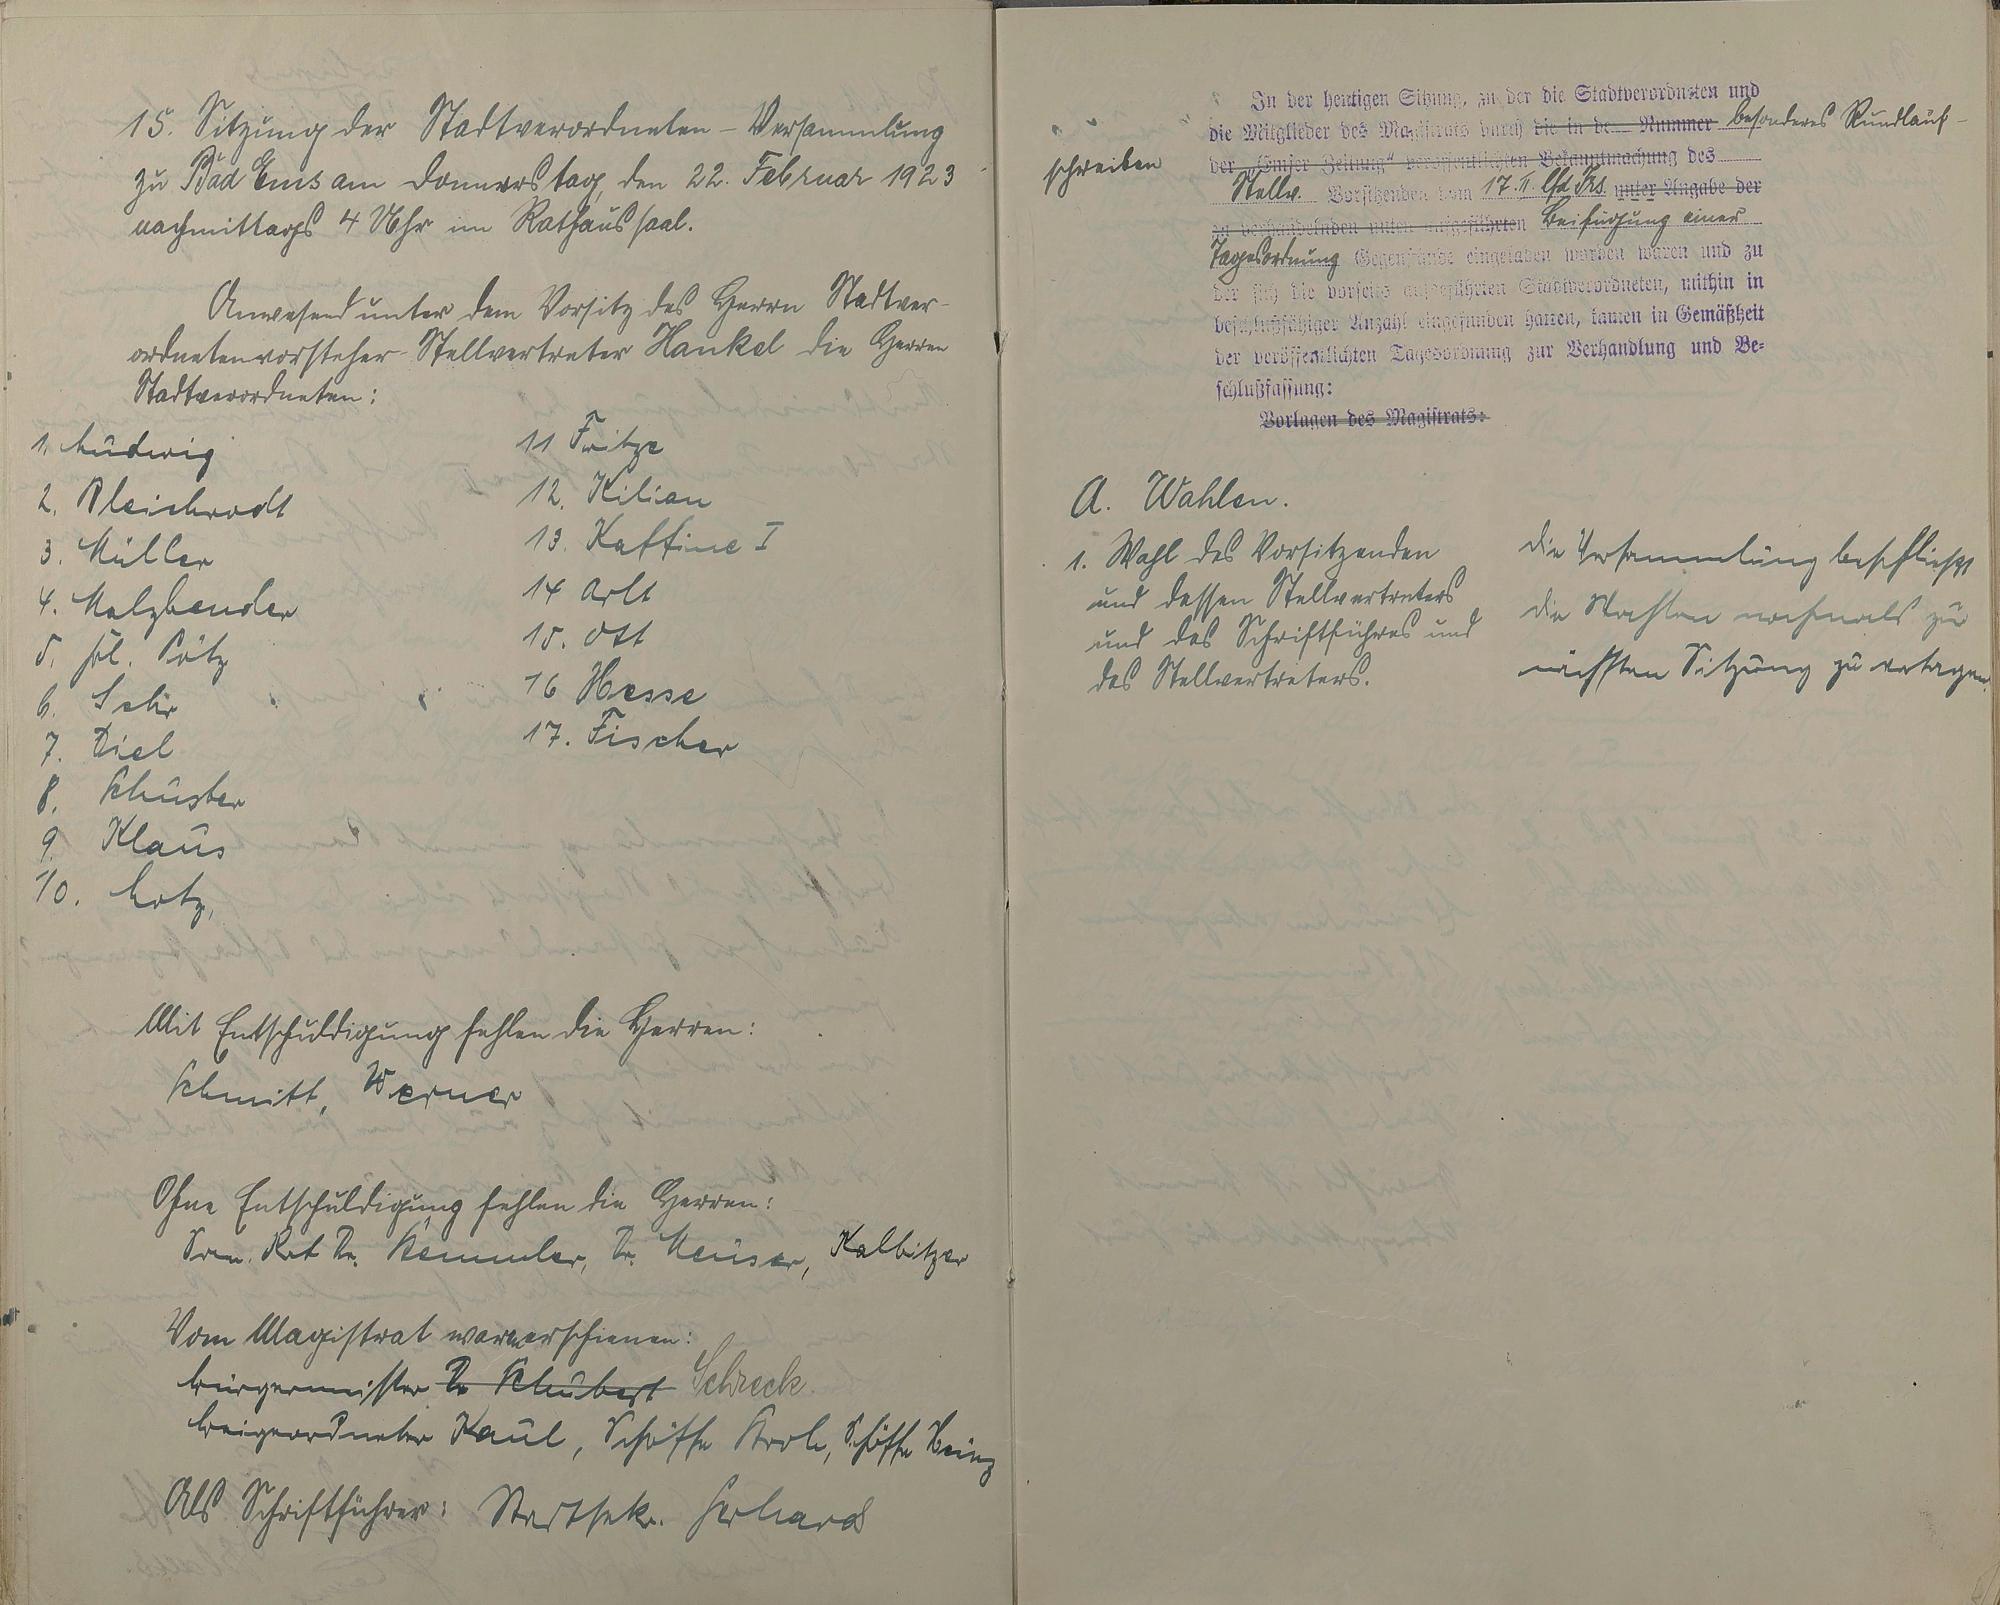 15. Sitzung der Stadtverordneten-Versammlung
zu Bad Ems am Donnerstag, den 22. Februar 1923
nachmittags 4 Uhr im Rathaussaal.
Anwesend unter dem Vorsitz des Herrn Stadtver-
ordnetenvorsteher-Stellvertreter Hankel die Herren
Stadtverordneten:
1. Ludwig
2. Bleichrodt
3. Müller
4. Malzbender
5. Frl. Pötz
6.
7. Diel
8. Schuster
9. Klaus
10. Lotz,
11 Fritze
12. Kilian
13. Kaffine I
14 Arlt
15. Ott
16 Hesse
17. Fischer
Mit Entschuldigung fehlen die Herren:
Schmitt, Werner
Ohne Entschuldigung fehlen die Herren:
San. Rat Dr. Stemmler, Dr. Meuser, Kalbitzer
Vom Magistrat waren erschienen:
Bürgermeister Dr Schubert Schreck
Beigeordneter Kaul, Schöffe Kroh, Schöffe Heinz
Als Schriftführer: Stadtsekr. Gerhard
In der heutigen Sitzung, zu der die Stadtverordneten und
die Mitglieder des Magistrats durch die in de Nummer besonderes Rundlauf-
schreiben
der „Emser Zeitung" veröffentlichten Bekanntmachung des
Stellv. Vorsitzenden vom 17. II. lfd Jrs. unter Angabe der
zu verhandelnden unten aufgeführten Beifügung einer
Tagesordnung Gegenstände eingeladen worden waren und zu
der sich die vorseits aufgeführten Stadtverordneten, mithin in
beschlußfähiger Anzahl eingefunden hatten, kamen in Gemäßheit
der veröffentlichten Tagesordnung zur Verhandlung und Be-
schlußfassung:
Vorlagen des Magistrats:
A. Wahlen.
1. Wahl des Vorsitzenden
und dessen Stellvertreters
und des Schriftführers und
des Stellvertreters.
Die Versammlung beschließt
die Wahlen nochmals zur
nächsten Sitzung zu vertagen.